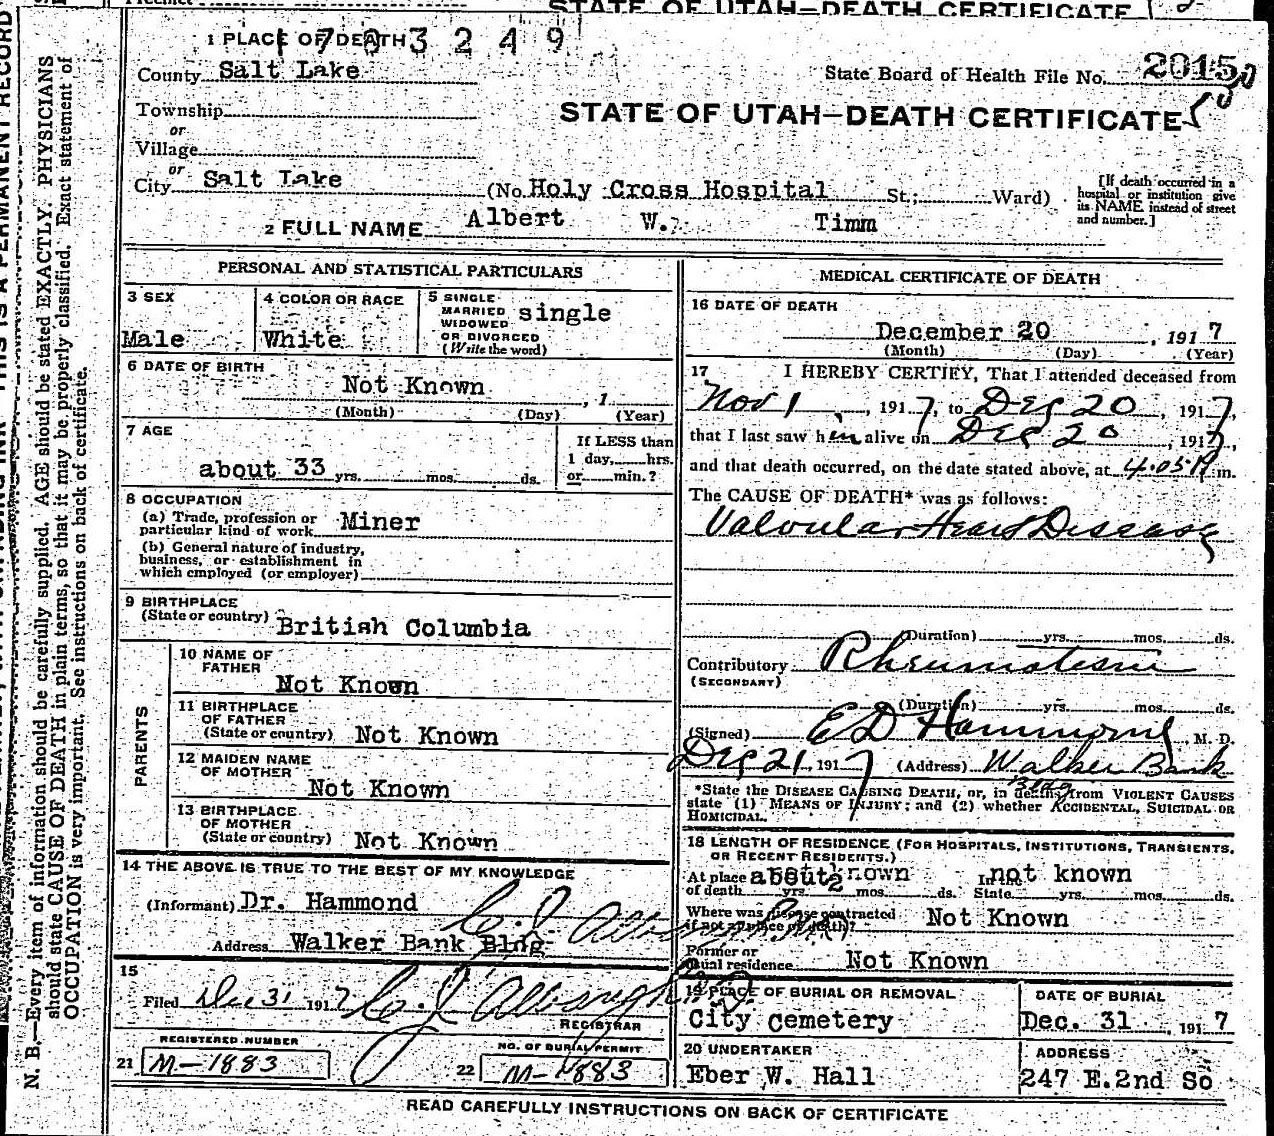 STATE OF UTAH—DEATH CERTIFICATE
1 PLACE OF DEATH
1 7 0 3 2 4 9
County Salt Lake
State Board of Health File No. 2015
Township
or
Village
or
City Salt Lake
STATE OF UTAH—DEATH CERTIFICATE
(No. Holy Cross Hospital St.; Ward)
[If death occurred in a
hospital or institution give
its NAME instead of street
and number.]
2 FULL NAME Albert W. Timm
PERSONAL AND STATISTICAL PARTICULARS
3 SEX
Male
4 COLOR OR RACE
White
5 SINGLE
MARRIED
WIDOWED
OR DIVORCED
(Write the word)
single
6 DATE OF BIRTH
Not Known , 1
(Month) (Day) (Year)
7 AGE
about 33 yrs. mos. ds.
If LESS than
1 day, hrs.
or min.?
8 OCCUPATION
(a) Trade, profession or
particular kind of work Miner
(b) General nature of industry,
business, or establishment in
which employed (or employer)
9 BIRTHPLACE
(State or country) British Columbia
PARENTS
10 NAME OF
FATHER
Not Known
11 BIRTHPLACE
OF FATHER
(State or country) Not Known
12 MAIDEN NAME
OF MOTHER
Not Known
13 BIRTHPLACE
OF MOTHER
(State or country) Not Known
14 THE ABOVE IS TRUE TO THE BEST OF MY KNOWLEDGE
(Informant) Dr. Hammond
Address Walker Bank Bldg
15
Filed Dec 31 1917
REGISTRAR
REGISTERED NUMBER
21 M-1883
NO. OF BURIAL PERMIT
22 M-1883
MEDICAL CERTIFICATE OF DEATH
16 DATE OF DEATH
December 20 , 191 7
(Month) (Day) (Year)
17 I HEREBY CERTIFY, That I attended deceased from
Nov 1 , 1917, to Dec 20 , 1917,
that I last saw him alive on Dec 20 , 1917,
and that death occurred, on the date stated above, at 4.05 P m.
The CAUSE OF DEATH* was as follows:
Valvular Heart Disease
(Duration) yrs. mos. ds.
Contributory Rheumatism
(SECONDARY)
(Duration) yrs. mos. ds.
(Signed) E D Hammond , M. D.
Dec 21, 1917 (Address) Walker Bank
Bldg
*State the DISEASE CAUSING DEATH, or, in deaths from VIOLENT CAUSES
state (1) MEANS OF INJURY; and (2) whether ACCIDENTAL, SUICIDAL OR
HOMICIDAL.
18 LENGTH OF RESIDENCE (FOR HOSPITALS, INSTITUTIONS, TRANSIENTS,
OR RECENT RESIDENTS.)
At place
of death yrs. mos. ds.
In the
State yrs. mos. ds.
not known
Where was disease contracted
if not at place of death? Not Known
Former or
usual residence Not Known
19 PLACE OF BURIAL OR REMOVAL
City Cemetery
DATE OF BURIAL
Dec. 31 , 191 7
20 UNDERTAKER
Eber W. Hall
ADDRESS
247 E.2nd So
READ CAREFULLY INSTRUCTIONS ON BACK OF CERTIFICATE
N. B.—Every item of information should be carefully supplied. AGE should be stated EXACTLY. PHYSICIANS
should state CAUSE OF DEATH in plain terms, so that it may be properly classified. Exact statement of
OCCUPATION is very important. See instructions on back of certificate.